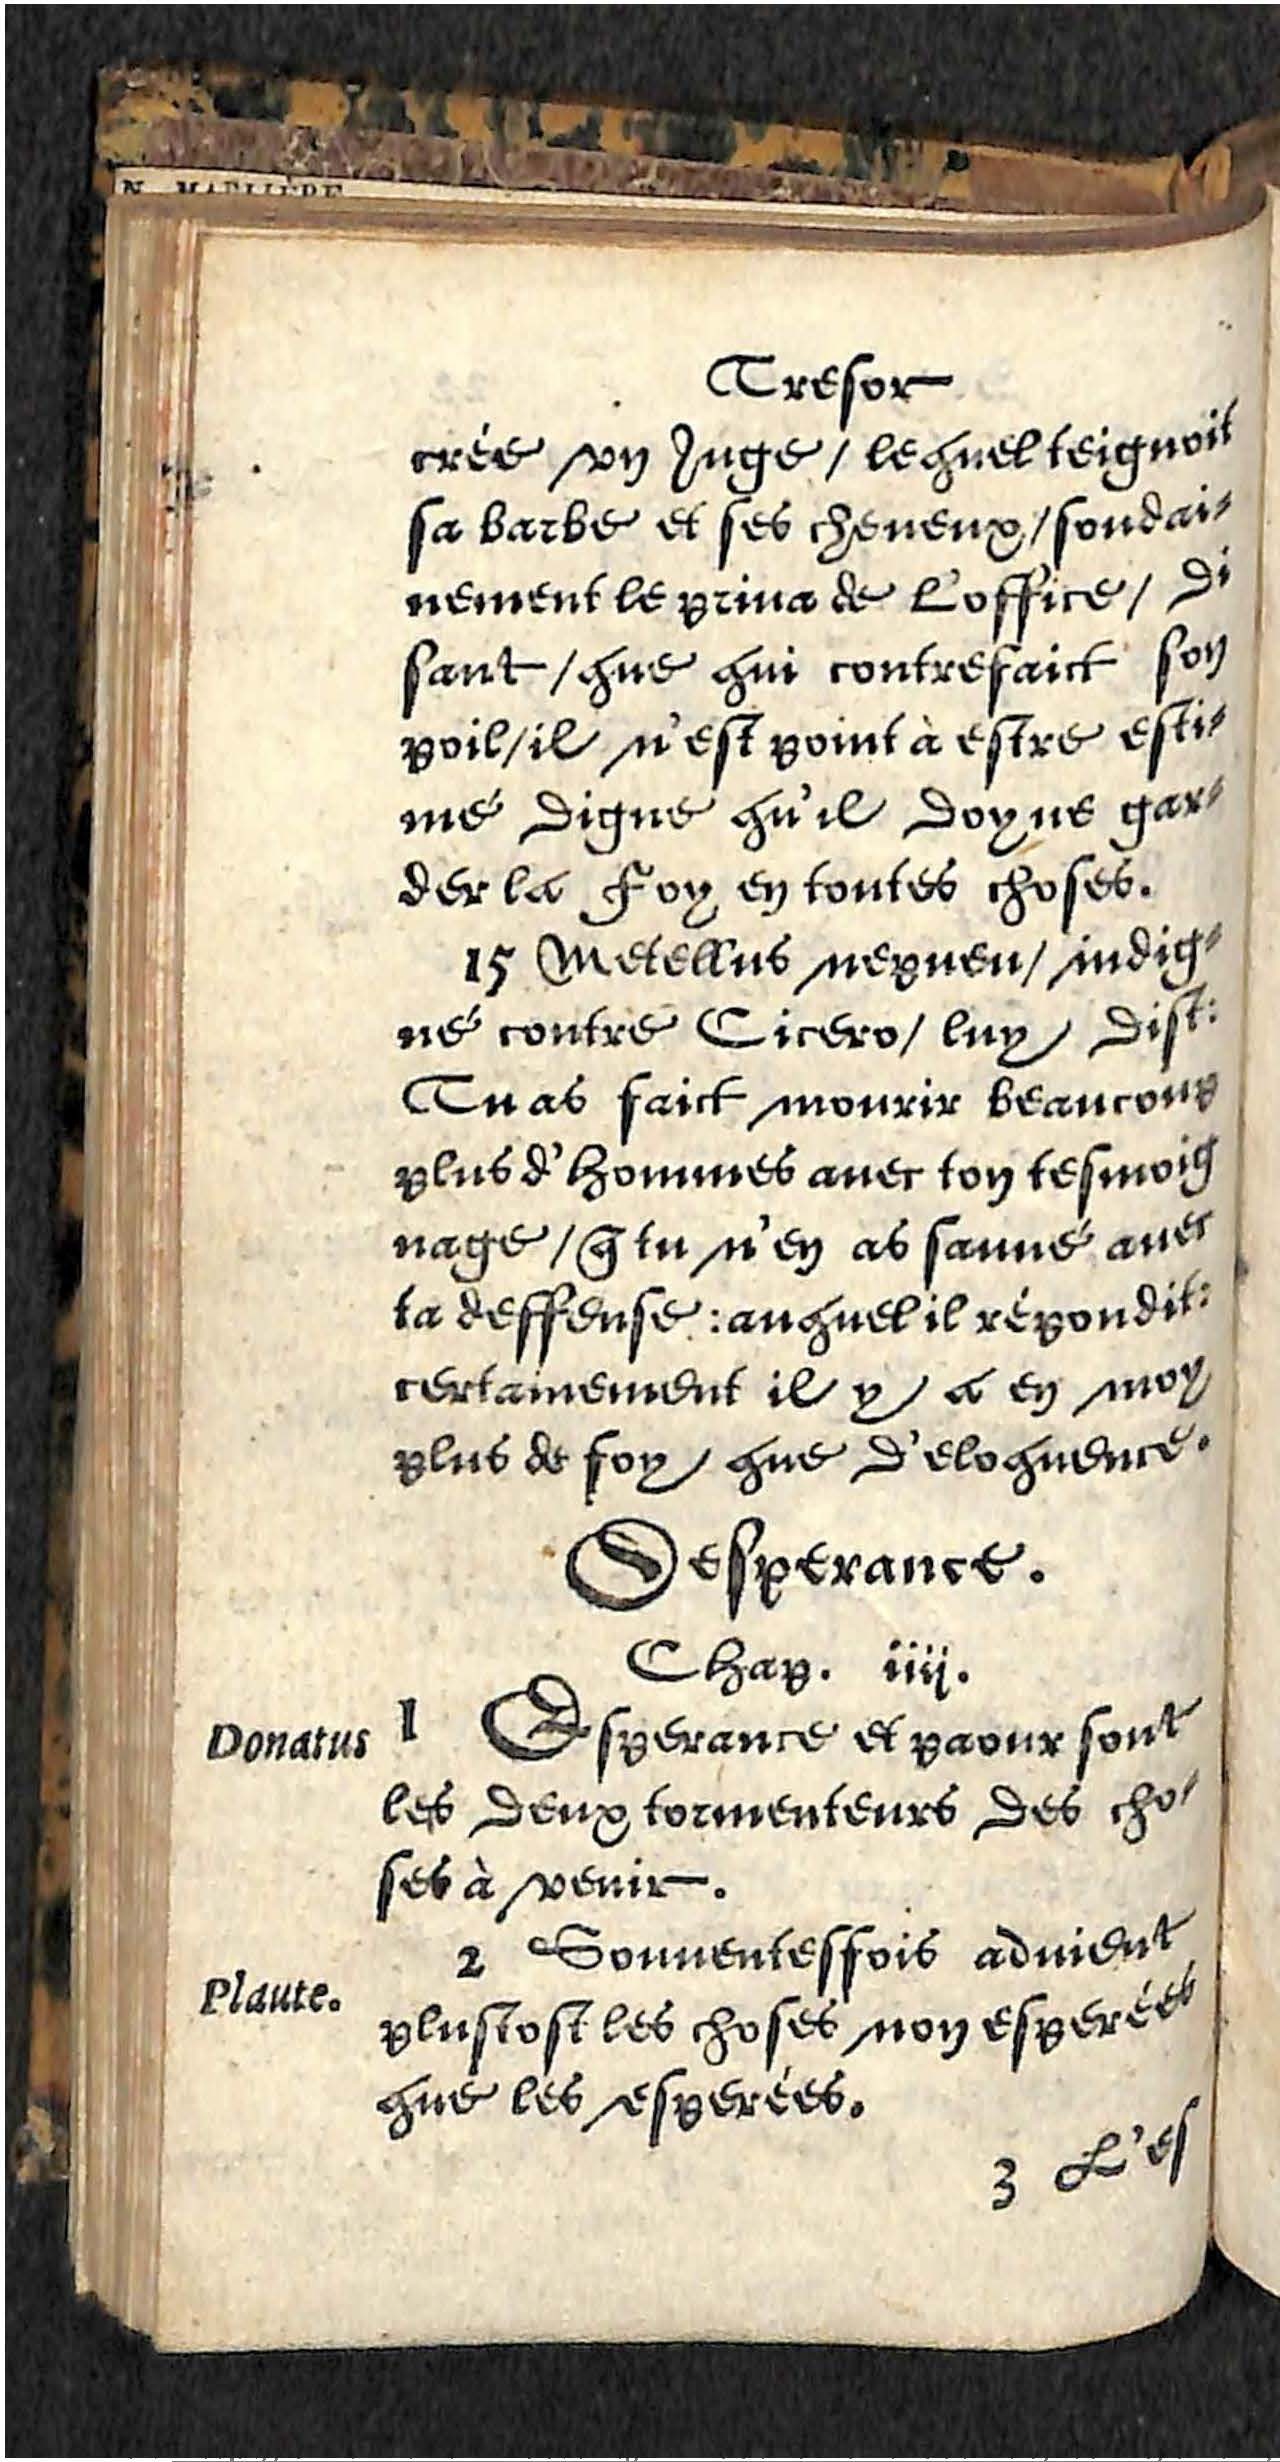 N. MAELIÈRE
Tresor
crée vn Juge / lequel teignoit
sa barbe et ses cheueux / soudai-
nement le priua de l'office / di
sant / que qui contrefaict son
poil / il n'est point à estre esti-
mé digne qu'il doyue gar-
der la Foy en toutes choses.
15 Metellus nepueu / indig-
né contre Cicero / luy dist:
Tu as faict mourir beaucoup
plus d'hommes auec ton tesmoig
nage / q̃ tu n'en as sauué auec
ta deffense: auquel il répondit:
certainement il y a en moy
plus de foy que d'eloquence.
Desperance.
Chap. iiij.
Donatus 1 Esperance et paour sont
les deux tormenteurs des cho-
ses à venir.
2 Souuentesfois aduient
Plaute. plustost les choses non esperées
que les esperées.
3 L'es